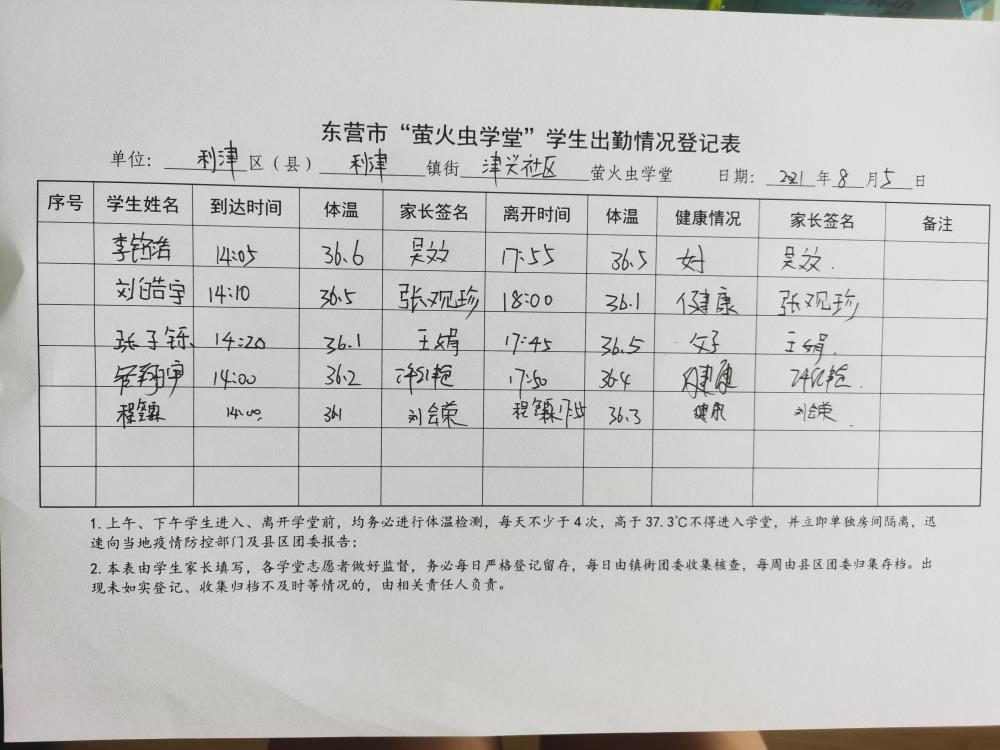 东营市“萤火虫学堂”学生出勤情况登记表
单位: 利津 区（县） 利津 镇街 津兴社区 萤火虫学堂 日期: 2021 年 8 月 5 日
序号 学生姓名 到达时间 体温 家长签名 离开时间 体温 健康情况 家长签名 备注
李钰浩 14:05 36.6 吴效 17:55 36.5 好 吴效.
刘皓宇 14:10 36.5 张观珍 18:00 36.1 健康 张观珍
张子铄 14:20 36.1 王娟 17:45 36.5 好 王娟.
翔宇 14:00 36.2 17:50 36.4 健康
程镓 14:00 36.1 刘会荣 程镓 17:55 36.3 健康 刘会荣
1.上午、下午学生进入、离开学堂前，均务必进行体温检测，每天不少于4次，高于37.3℃不得进入学堂，并立即单独房间隔离，迅
速向当地疫情防控部门及县区团委报告；
2.本表由学生家长填写，各学堂志愿者做好监督，务必每日严格登记留存，每日由镇街团委收集核查，每周由县区团委归集存档。出
现未如实登记、收集归档不及时等情况的，由相关责任人负责。